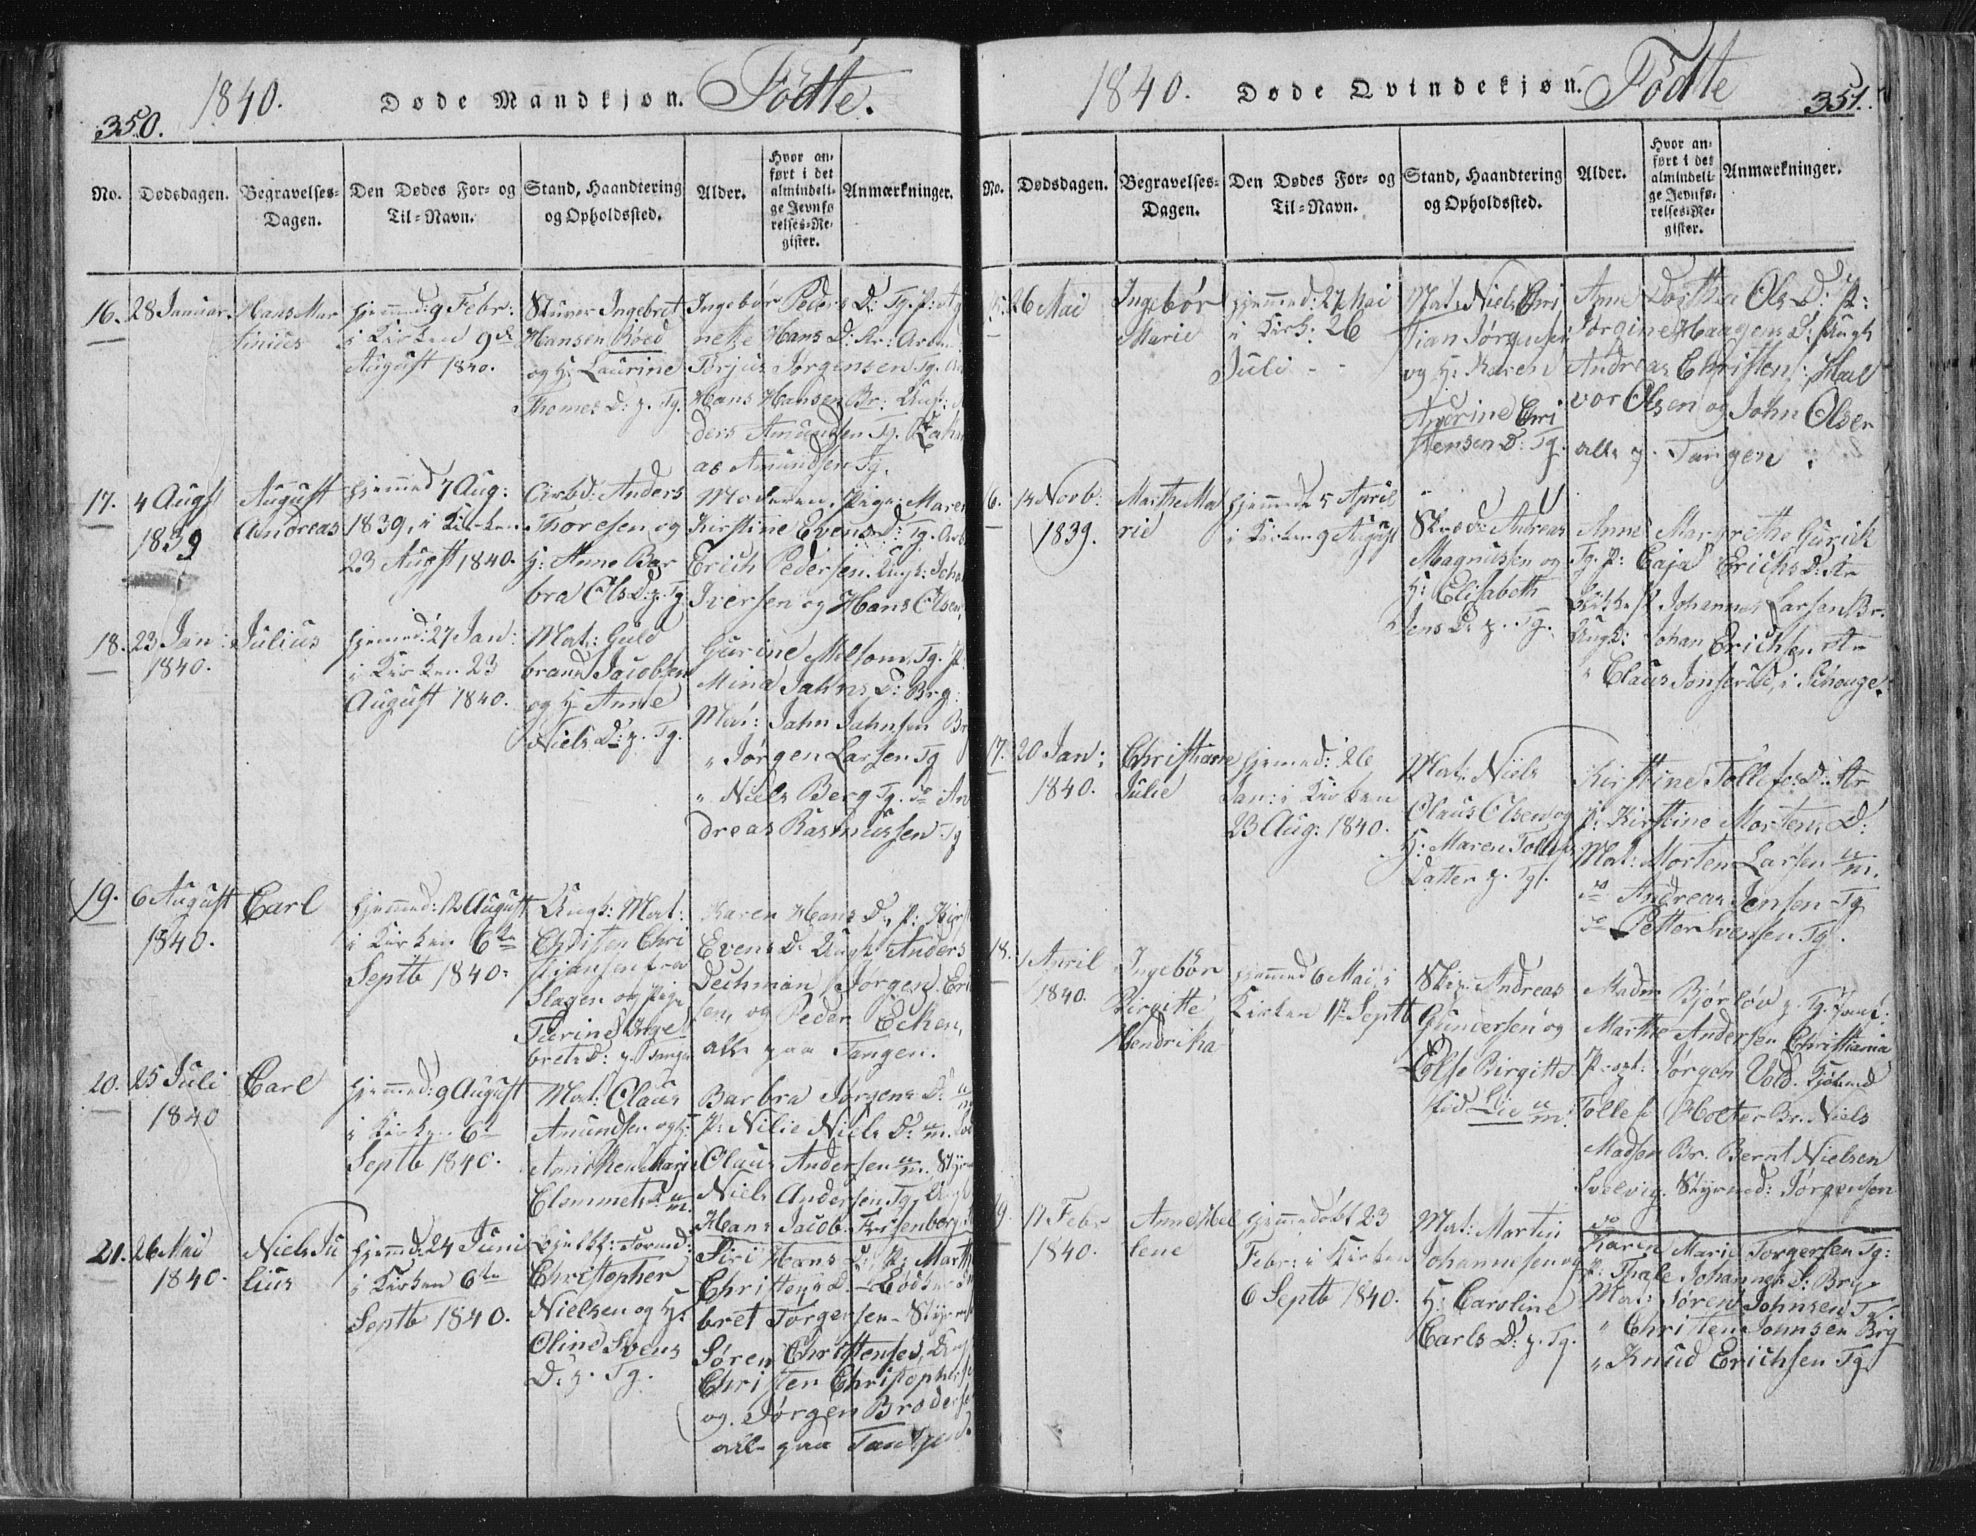 350.
1840.
Døde Mandkjøn. Födte.
No.
Dødsdagen.
Begravelses-
Dagen.
Den Dødes For- og
Til-Navn.
Stand, Haandtering
og Opholdssted.
Alder.
Hvor an-
ført i det
almindeli-
ge Jevnfø-
relses-Re-
gister.
Anmærkninger.
16. 28 Januar.
Hans Mar
tinius
hjemmed: 9 Febr:
i Kirken 9de
August 1840.
Stuver Ingebret
Hansen Röed
og H: Laurine
Thomes D: p. Tg.
Ingebör Peders D: Tg. P:
nette Hans D:
Torjus Jørgensen Tg.
Hans Hansen Br:
ders Amundsen Tg.
as Amundsen Tg.
17. 4 Augst
1839
August
Andreas
hjemmed 7 Aug:
1839, i Kirken
23 Augst 1840.
Arbd: Anders
Thoresen og
H: Anne Bar
bra Ols D. p. Tg.
Moderen. Pige: Maren
Kirstine Evens D: Tg.
Erich Pedersen.
Iversen og Hans Olsen
18. 23 Jan:
1840.
Julius
hjemmed: 27 Jan:
i Kirken 23
August 1840.
Mat: Guld
brand Jacobsen
og H: Anne
Niels D: p. Tg.
Gurine Melsom, Tg. P:
Mina Jahns D: Brg:
Mat: Jahn Jahnsen Br
" Jørgen Larsen Tg
" Niels Berg Tg. do An
dreas Rasmussen Tg
19. 6 August
1840.
Carl
hjemmed: 12 August
i Kirken 6te
Septb 1840.
Ungk: Mat:
Christen Chri
stiansen fra
Slagen og Pige
Turine Inge
brets D:
Karen Hans D., P:
Evens D. Ungk: Anders
Dechman, Jørgen
sen, og Peder Ecken,
alle paa Tangen.
20. 25 Juli
1840
Carl
hjemmed: 9 August
i Kirken 6te
Septb 1840.
Mat: Claus
Amundsen og H:
Anniken Marie
Clemmets D
Barbra Jørgens D:
P: Nilie Niels D:
Claus Andersen
Niels Andersen Tg,
Hans Jacob
21. 26 Mai
1840.
Niels Ju
lius
hjemmd: 24 Juni
i Kirken 6te
Septb 1840.
Christopher
Nielsen og H:
Oline Svens
D. p. Tg.
Siri Hans D, P:
Christens D.
bret Torgersen
Søren Christensen,
Christen Christophers
og Jørgen Broders
alle paa Tangen.
1840.
Døde Qvindekjøn. Födte
351.
No.
Dødsdagen.
Begravelses-
Dagen.
Den Dødes For- og
Til-Navn.
Stand, Haandtering
og Opholdssted.
Alder.
Hvor an-
ført i det
almindeli-
ge Jevnfø-
relses-Re-
gister.
Anmærkninger.
26 Mai
Ingebör
Marie
hjemmed: 27 Mai
i Kirk: 26
Juli
Mat: Niels Chri
stian Jørgensen
og H: Karen
Anerine Chri
stensen D: Tg.
Anne Dorthea Ols D: P:
Jørgine Haagens D: Ungk
Andreas Christens: Hal
vor Olsen og John Olsen
alle p. Tangen.
6. 14 Novb:
1839.
Marthe Ma
rie
hjemmed: 5 April
i Kirken 9 August
Andreas
Magnussen og
H: Elisabeth
Jens D. p. Tg.
Anne Margrethe Gurich
Tg. P: Caja Erichs D:
Johannes Larsen Br.
Ungk: Johan Erichsen
" Claus
17. 20 Jan:
1840.
Christiane
Julie
hjemmed: 26
Jan: i Kirken
23 Aug: 1840.
Mat: Niels
Claus Olsen og
H: Maren Tollefs
Datter p. Tg.
Kirstine Tollefs D:
P: Kirstine Mortens D:
Mat: Morten Larsen
do Andreas Jensen Tg
do Petter Svensen Tg.
18. 1 April
1840.
Ingebör
Birgitte
Hendrika
hjemmed 6 Mai, i
Kirken 17 Septb
Andreas
Gundersen og
Else Birgitte
fød Lie
Madm Bjørløw p. Tg.
Marthe Andersen Christiania
Jørgen Vold.
Tollef Holter Br. Niels
Madsen Br. Bernt Nielsen
Solvig. Styrmd: Jørgensen
17 Febr
1840.
Anne He
lene
hjemmedøbt 23
Febr: i Kirken
6 Septb 1840.
Mat: Martin
Johannsen og
H: Caroline
Carls D: p. Tg.
Karen Marie Torgersen Tg:
P: Thale Johannes D: Brg
Mat: Søren Johnsen Tg
" Christen Johnsen Brg
" Knud Erichsen Tg